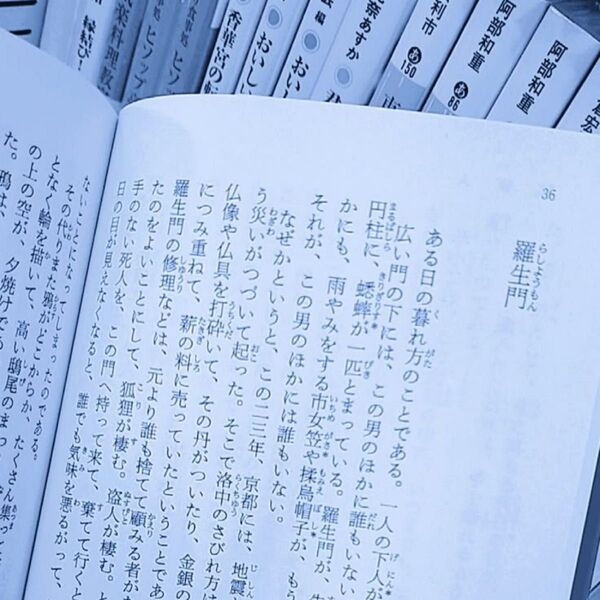 縁結び!
薬料理教
ヒソップ
ヒソ
香華宮の転
おいし
おい
編
奈あすか
利市
あ150
阿部和重
あ86
阿部和重
36
羅生門
ある日の暮れ方のことである。一人の下人が
広い門の下には、この男のほかに誰もいない
円柱に、蟋蟀が一匹とまっている。羅生門が、
かにも、雨やみをする市女笠や揉烏帽子が、もう
それが、この男のほかには誰もいない。
なぜかというと、この二三年、京都には、地震
う災いがつづいて起った。そこで洛中のさびれ方は
仏像や仏具を打砕いて、その丹がついたり、金銀の
につみ重ねて、薪の料に売っていたということであ
羅生門の修理などは、元より誰も捨てて顧みる者が
たのをよいことにして、狐狸が棲む。盗人が棲む。と
手のない死人を、この門へ持って来て、棄てて行くと
日の目が見えなくなると、誰でも気味を悪るがって、
ないことになってしまったのである。
その代りまた鴉がどこからか、たくさん集っ
となく輪を描いて、高い鴟尾のまっ
の上の空が、夕焼けで
た。鴉は、